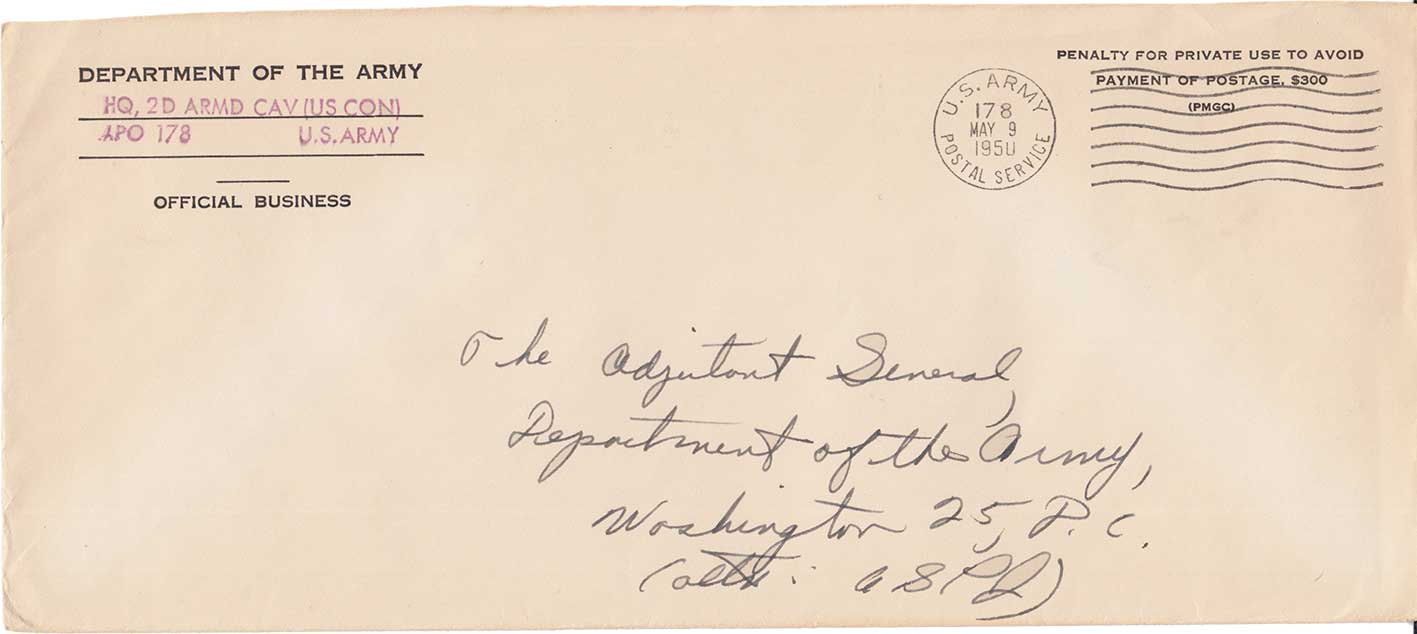 DEPARTMENT OF THE ARMY
HQ, 2D ARMD CAV (US CON)
APO 178 U.S. ARMY
OFFICIAL BUSINESS
U.S. ARMY
178
MAY 9
1950
POSTAL SERVICE
PENALTY FOR PRIVATE USE TO AVOID
PAYMENT OF POSTAGE, $300
(PMGC)
The Adjutant General,
Department of the Army,
Washington 25, D.C.
(attn: